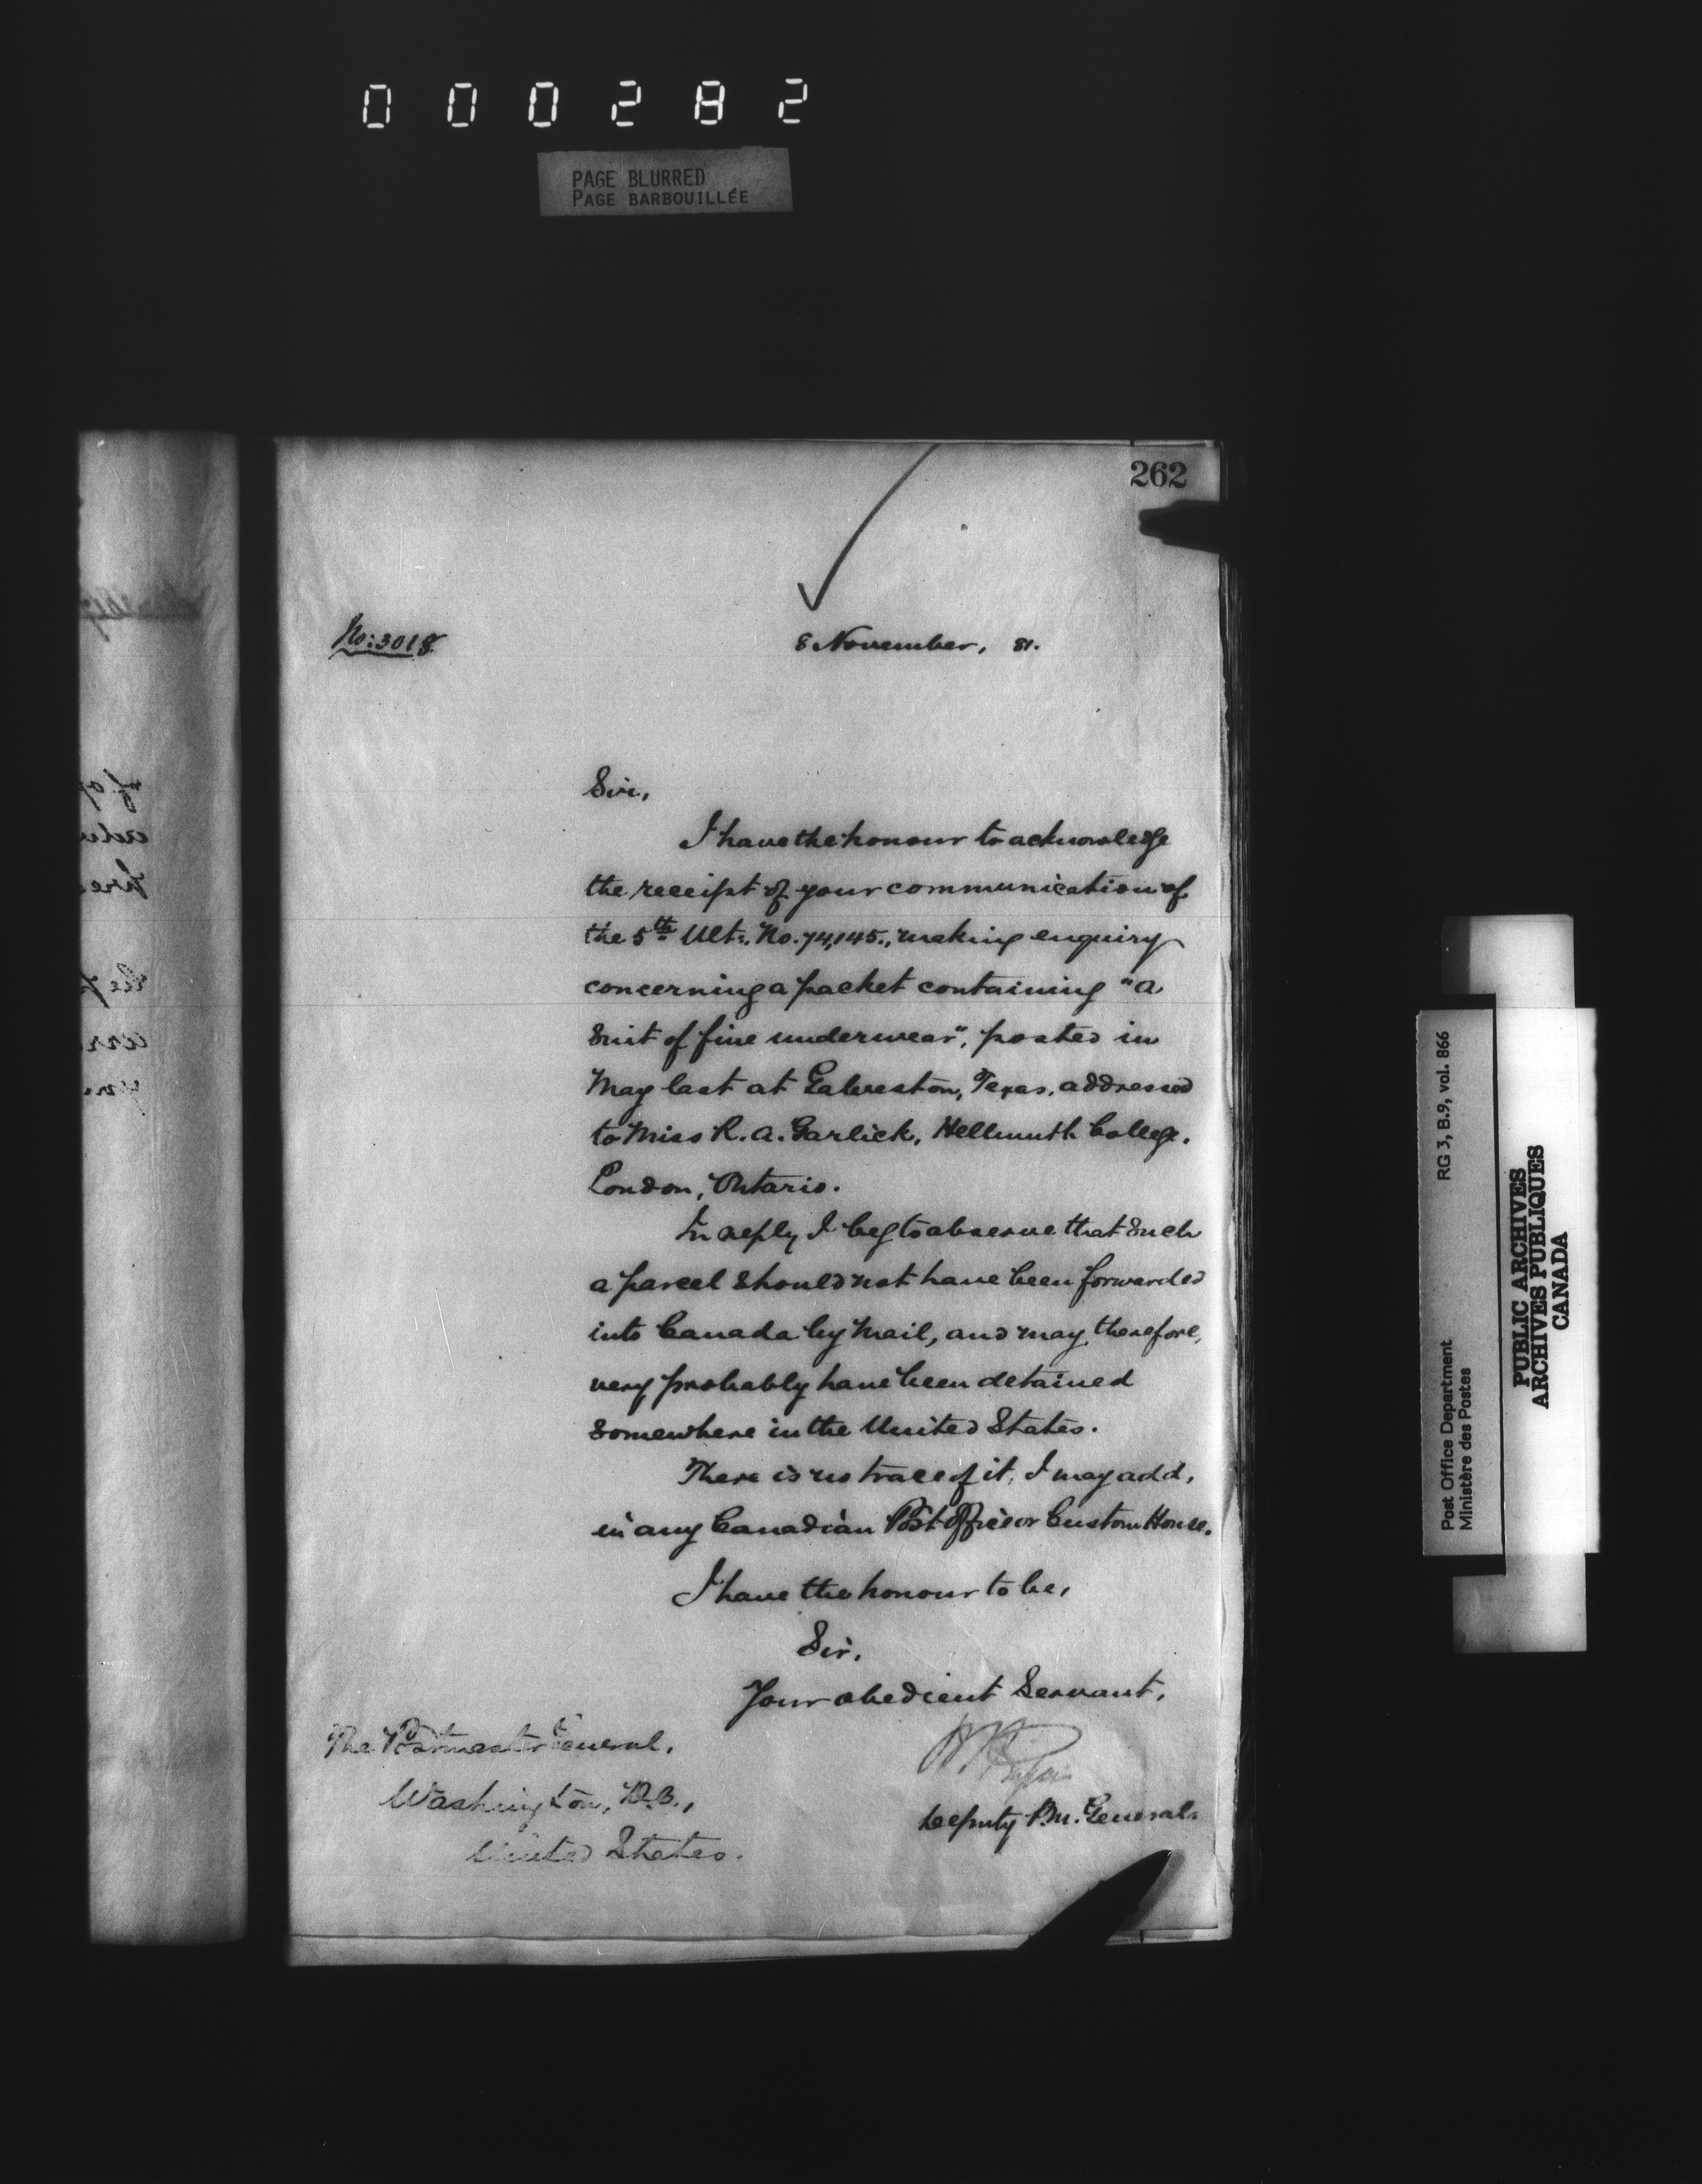 000282
PAGE BLURRED
PAGE BARBOUILLÉE
262
No: 3018.
8 November, 81.
Sir,
I have the honour to acknowledge
the receipt of your communication of
the 5th Ulto. No. 74,145., making enquiry
concerning a packet containing "a
Suit of fine underwear", posted in
May last at Galveston, Texas, addressed
to Miss R. A. Garlick, Hellmuth College,
London, Ontario.
In reply I beg to observe that such
a parcel should not have been forwarded
into Canada by Mail, and may, therefore,
very probably have been detained
somewhere in the United States.
There is no trace of it, I may add,
in any Canadian Post Office or Custom House.
I have the honour to be,
Sir,
Your obedient Servant,
Deputy P.M. General.
The Postmaster General,
Washington, D.C.,
United States.
RG 3, B.9, vol. 866
Post Office Department
Ministère des Postes
PUBLIC ARCHIVES
ARCHIVES PUBLIQUES
CANADA